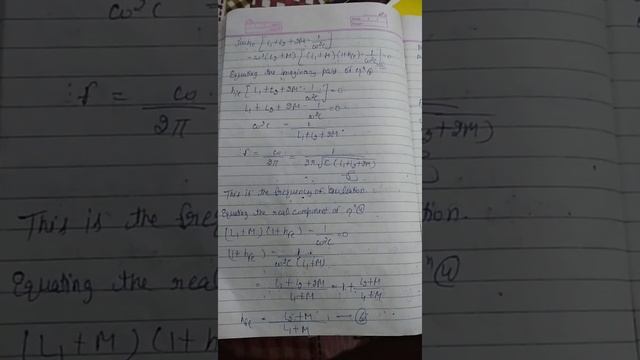 jωhie [L1 + L2 + 2M - 1/ω²C]
- ω²(L2 + M) [(L1 + M)(1 + hfe) - 1/ω²C] = 0
Equating the imaginary part of eqn
hie [L1 + L2 + 2M - 1/ω²C] = 0
L1 + L2 + 2M - 1/ω²C = 0
ω²C = 1/L1 + L2 + 2M
f = ω/2π = 1/2π√C(L1 + L2 + 2M)
This is the frequency of oscillation.
Equating the real component of eqn (4)
(L1 + M)(1 + hfe) - 1/ω²C = 0
(1 + hfe) = 1/ω²C (L1 + M)
= L1 + L2 + 2M/L1 + M = 1 + L2 + M/L1 + M
hfe = L2 + M/L1 + M